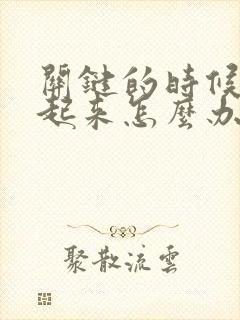 關鍵的時候
起来怎麼办
聚散流雲